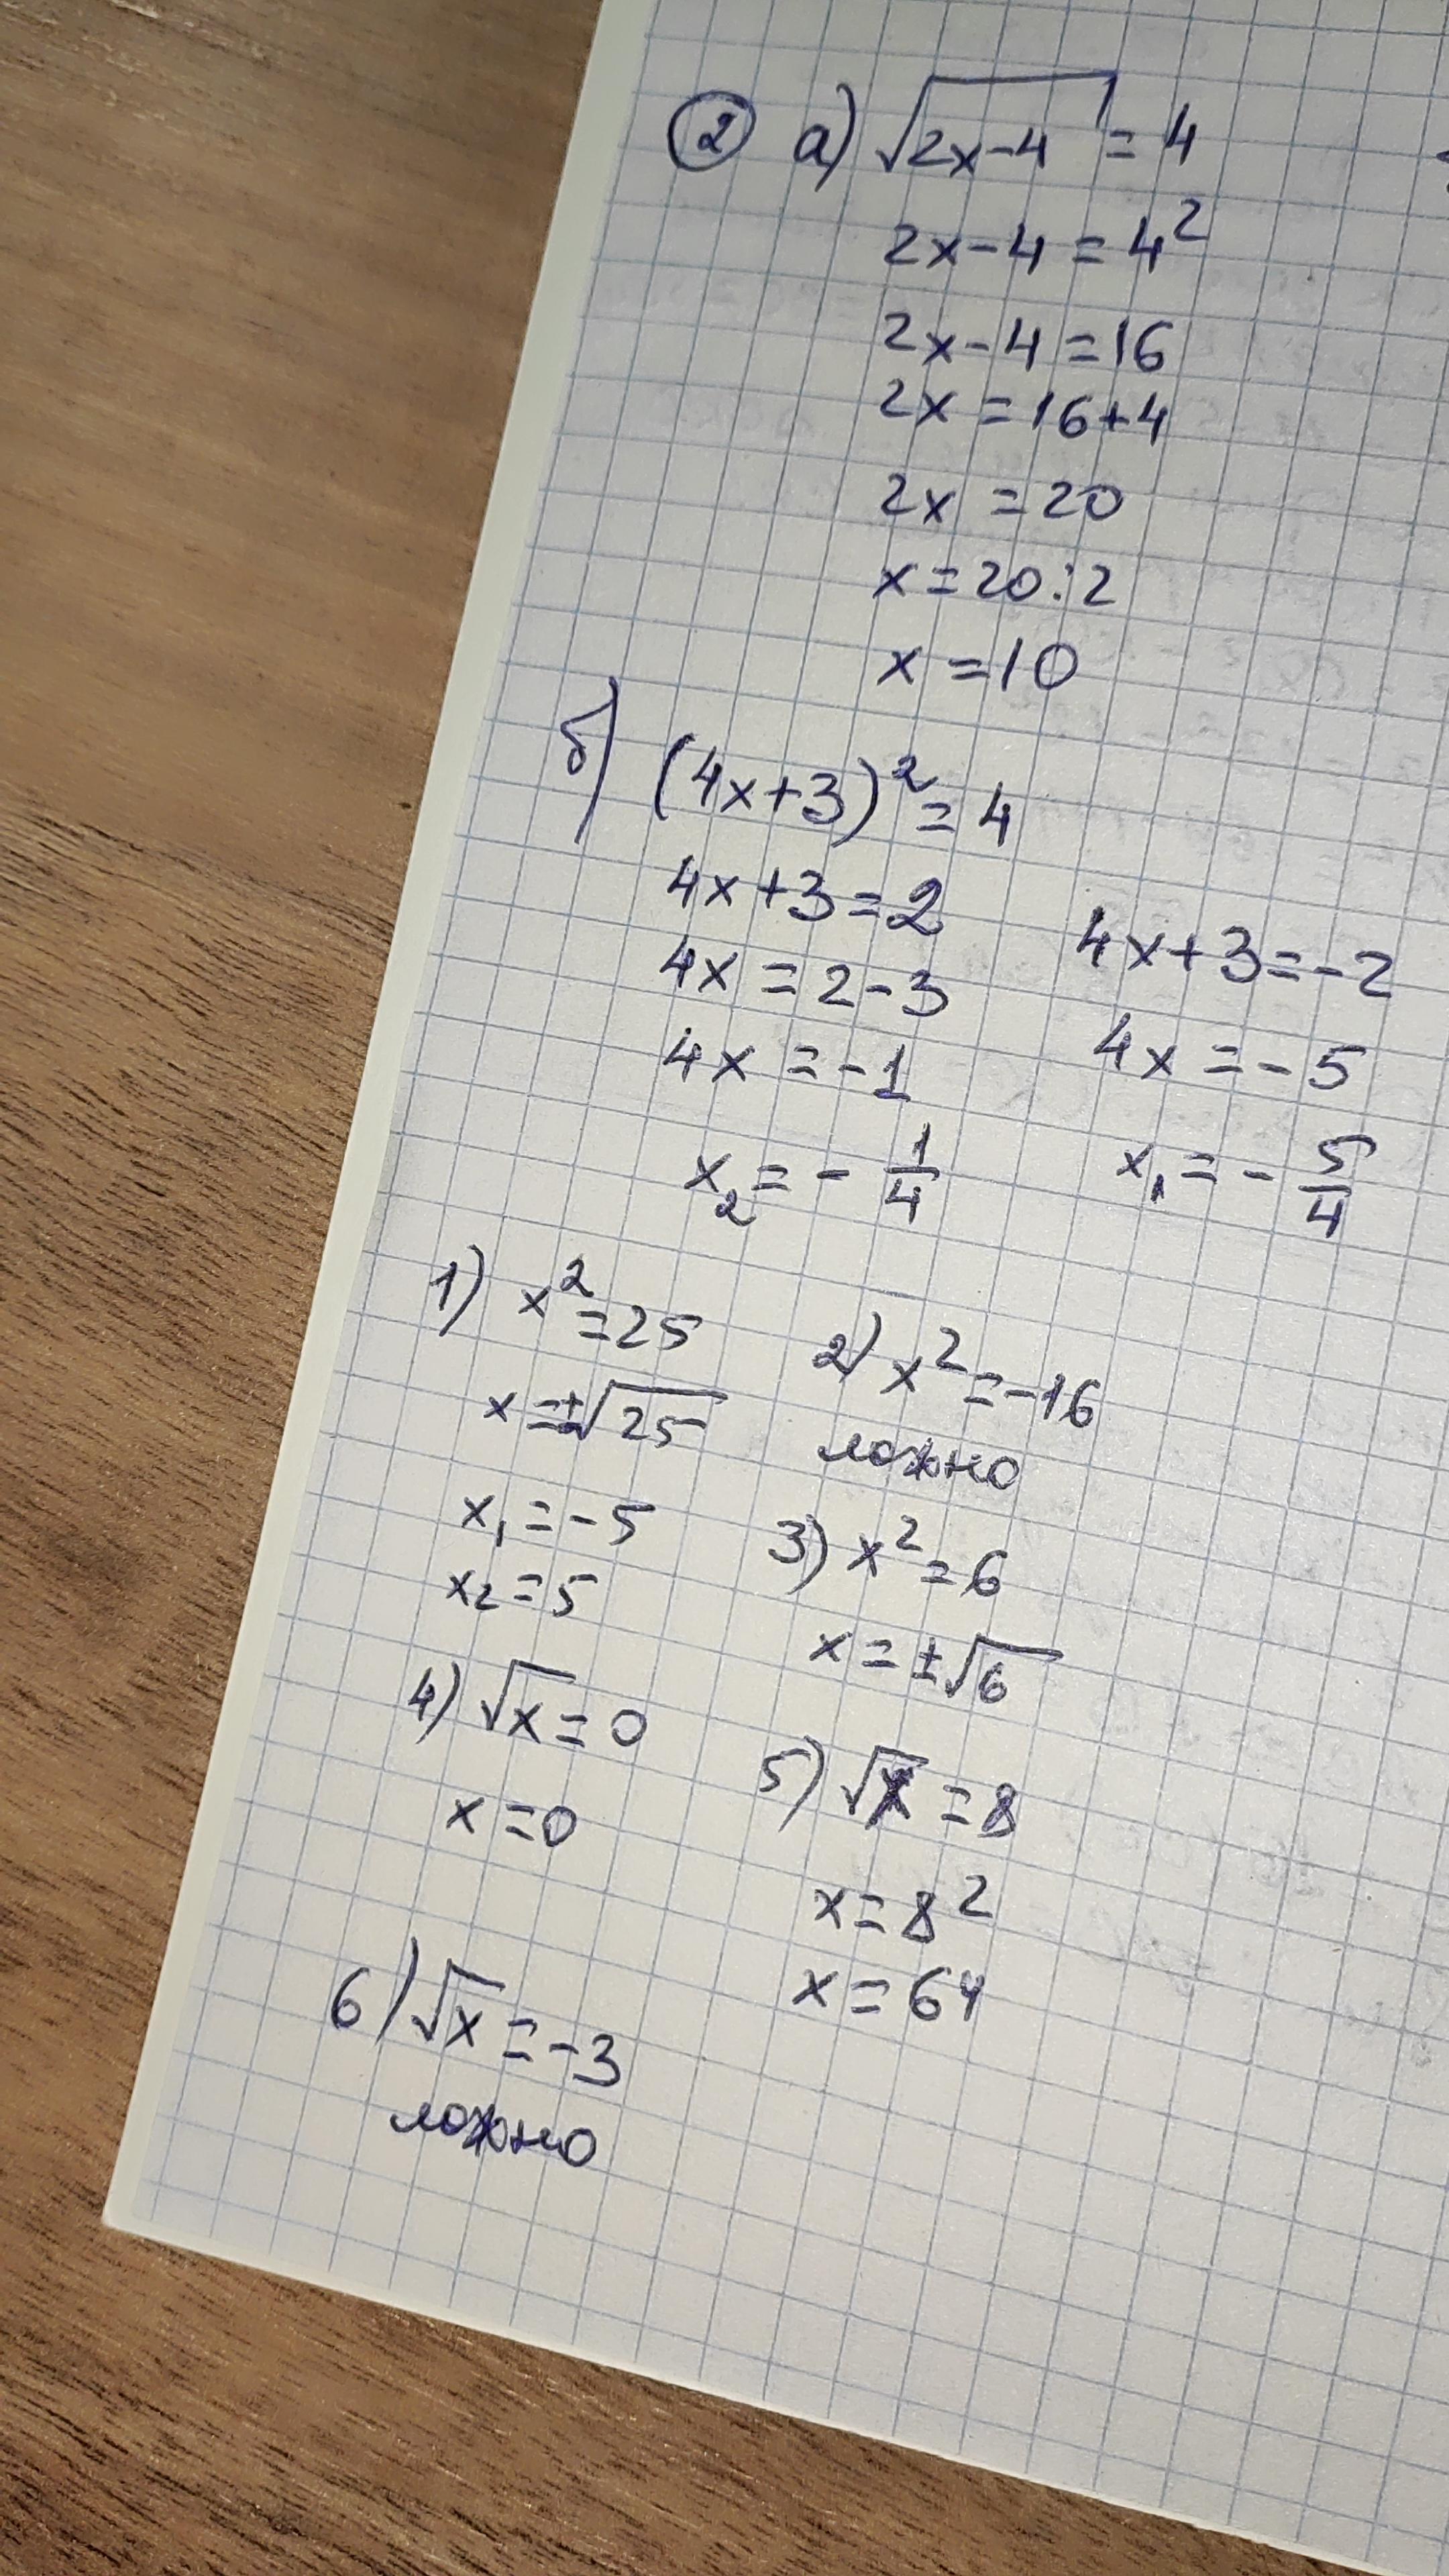 ② а) √(2x-4) = 4
2x-4 = 4²
2x-4 = 16
2x = 16+4
2x = 20
x = 20:2
x = 10
б) (4x+3)² = 4
4x+3 = 2
4x = 2-3
4x = -1
x₂ = - 1/4
4x+3 = -2
4x = -5
x₁ = - 5/4
1) x² = 25
x = ±√25
x₁ = -5
x₂ = 5
2) x² = -16
ложно
3) x² = 6
x = ±√6
4) √x = 0
x = 0
5) √x = 8
x = 8²
x = 64
6) √x = -3
ложно